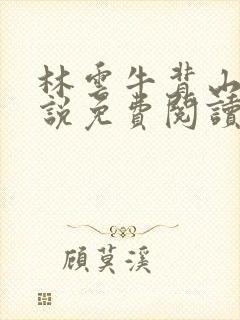 林雲牛背山
說免費閱讀
顧莫溪